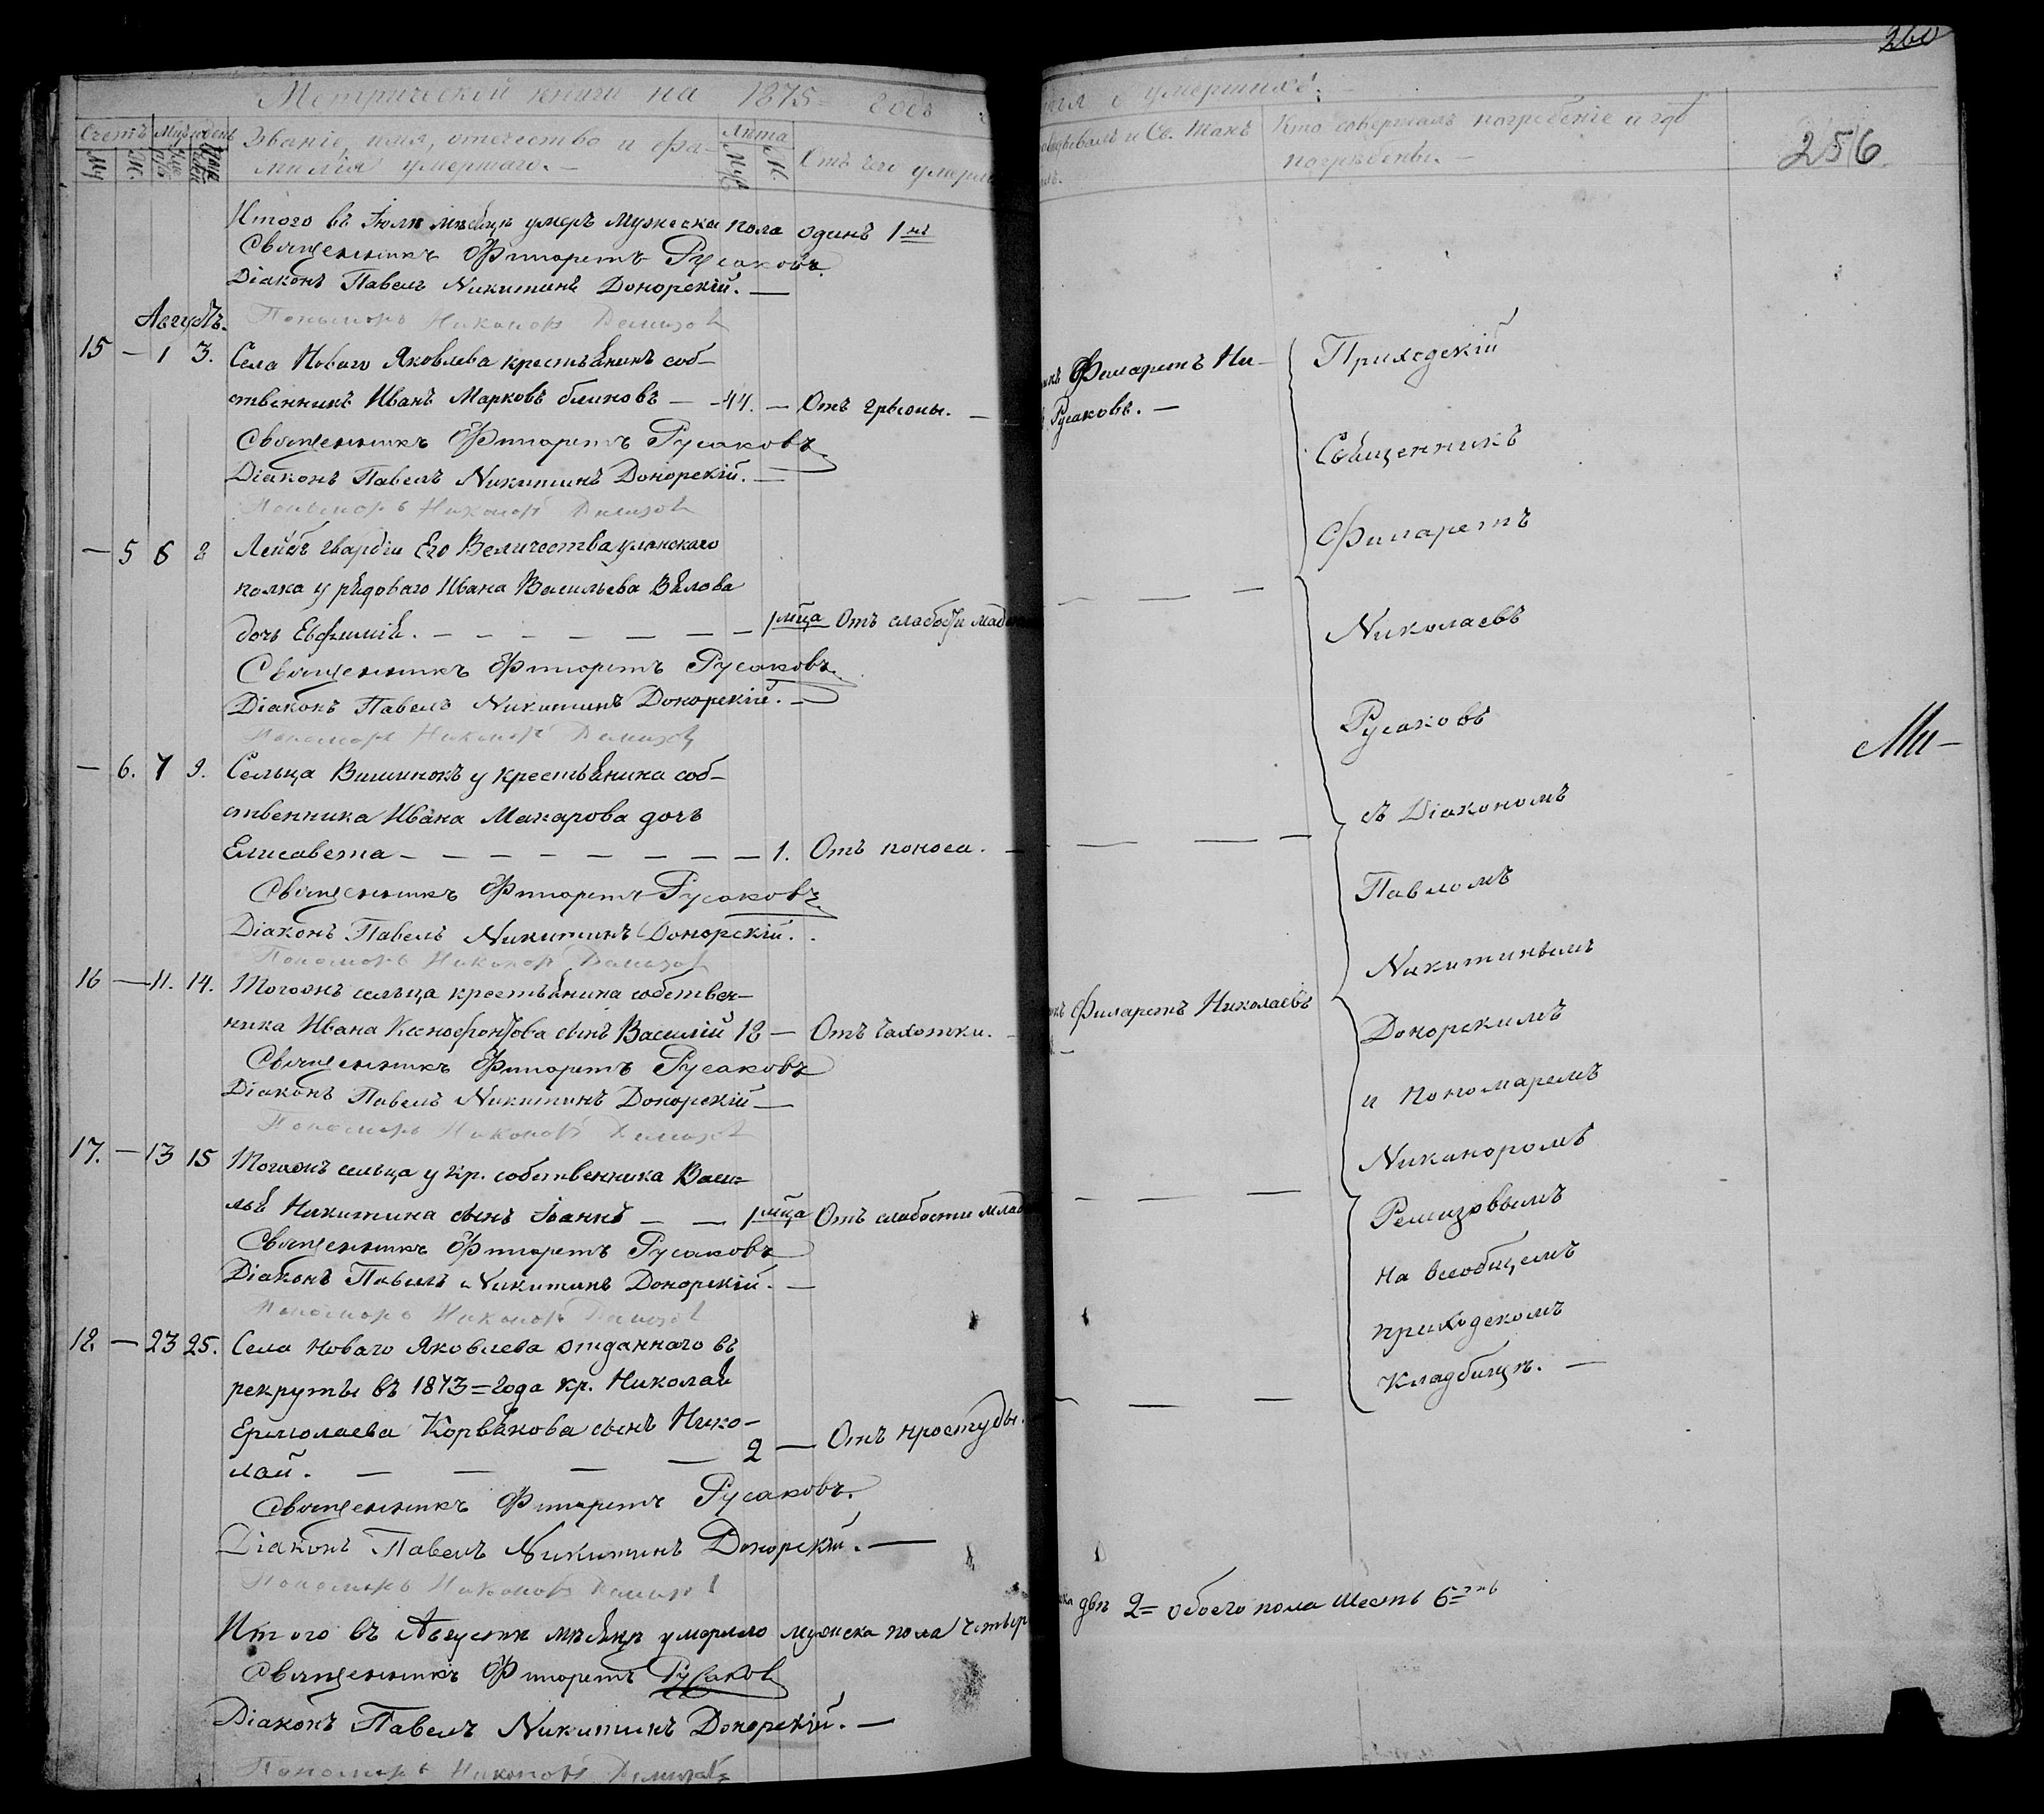 Метрической книги на 1875 годъ
Счетъ Мѣс. и день Званіе, имя, отечество и фа- Лѣта Отъ чего умерли
Му Ж. милія умершаго. – Му Ж.
Итого въ Іюлѣ мѣсяцѣ умеръ мужеска пола одинъ 1нъ
Священникъ Филаретъ Русаковъ
Діаконъ Павелъ Никитинъ Донорскій. –
Пономарь Никаноръ Ремизов
Августъ.
15 – 1 3. Села Новаго Яковлева крестьянинъ соб-
ственникъ Иванъ Марковъ блиновъ – 44. – Отъ грызы. –
Священникъ Филаретъ Русаковъ
Діаконъ Павелъ Никитинъ Донорскій. –
Пономарь Никаноръ Ремизов
– 5 6 8 Лейбъ гвардіи Его Величества уланскаго
полка у рядоваго Ивана Васильева Бѣлова
дочь Евфимія. – – – – – – – 1 мца Отъ слабости млад
Священникъ Филаретъ Русаковъ.
Діаконъ Павелъ Никитинъ Донорскій. –
Пономарь Никаноръ Ремизов
– 6. 7 9. Сельца Вишинокъ у крестьянина соб-
ственника Ивана Макарова дочь
Елисавета – – – – – – – – 1. Отъ поноса. –
Священникъ Филаретъ Русаковъ
Діаконъ Павелъ Никитинъ Донорскій.
Пономарь Никаноръ Ремизов
16 – 11. 14. Тогожъ сельца крестьянина собствен-
ника Ивана Ксенофонтова сынъ Василій 18 – Отъ чахотки. –
Священникъ Филаретъ Русаковъ
Діаконъ Павелъ Никитинъ Донорскій –
Пономарь Никаноръ Ремизов
17. – 13 15 Тогожъ сельца у кр. собственника Васи-
лья Никитина сынъ Іоаннъ – – 1 мца Отъ слабости млад
Священникъ Филаретъ Русаковъ
Діаконъ Павелъ Никитинъ Донорскій. –
Пономарь Никаноръ Ремизов
18 – 23 25. Села Новаго Яковлева отданнаго въ
рекруты въ 1873= года кр. Николая
Ермолаева Корвякова сынъ Нико-
лай. – – – – 2 – Отъ простуды.
Священникъ Филаретъ Русаковъ.
Діаконъ Павелъ Никитинъ Донорскій. –
Пономарь Никаноръ Ремизов
Итого въ Августѣ мѣсяцѣ умерло мужеска пола четыр
Священникъ Филаретъ Русаков
Діаконъ Павелъ Никитинъ Донорскій. –
Пономарь Никаноръ Ремизовъ
260
о умершихъ.
и Св. Таин Кто совершалъ погребеніе и гдѣ
погребены. –
256
Филаретъ Ни-
Русаковъ. –
Приходскій
Священникъ
Филаретъ
Николаевъ
Русаковъ
съ Діакономъ
Павломъ
Никитинымъ
Филаретъ Николаевъ
Донорскимъ
и Пономаремъ
Никаноромъ
Ремизовымъ
на всеобщемъ
приходскомъ
Кладбищѣ. –
Ми-
двѣ 2= обоего пола шесть 6=ть